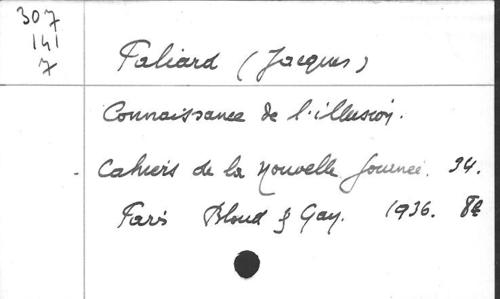 307
141
7
Paliard (Jacques)
Connaissance de l'illusion.
Cahiers de la Nouvelle Journée. 34.
Paris Bloud & Gay. 1936. 8º